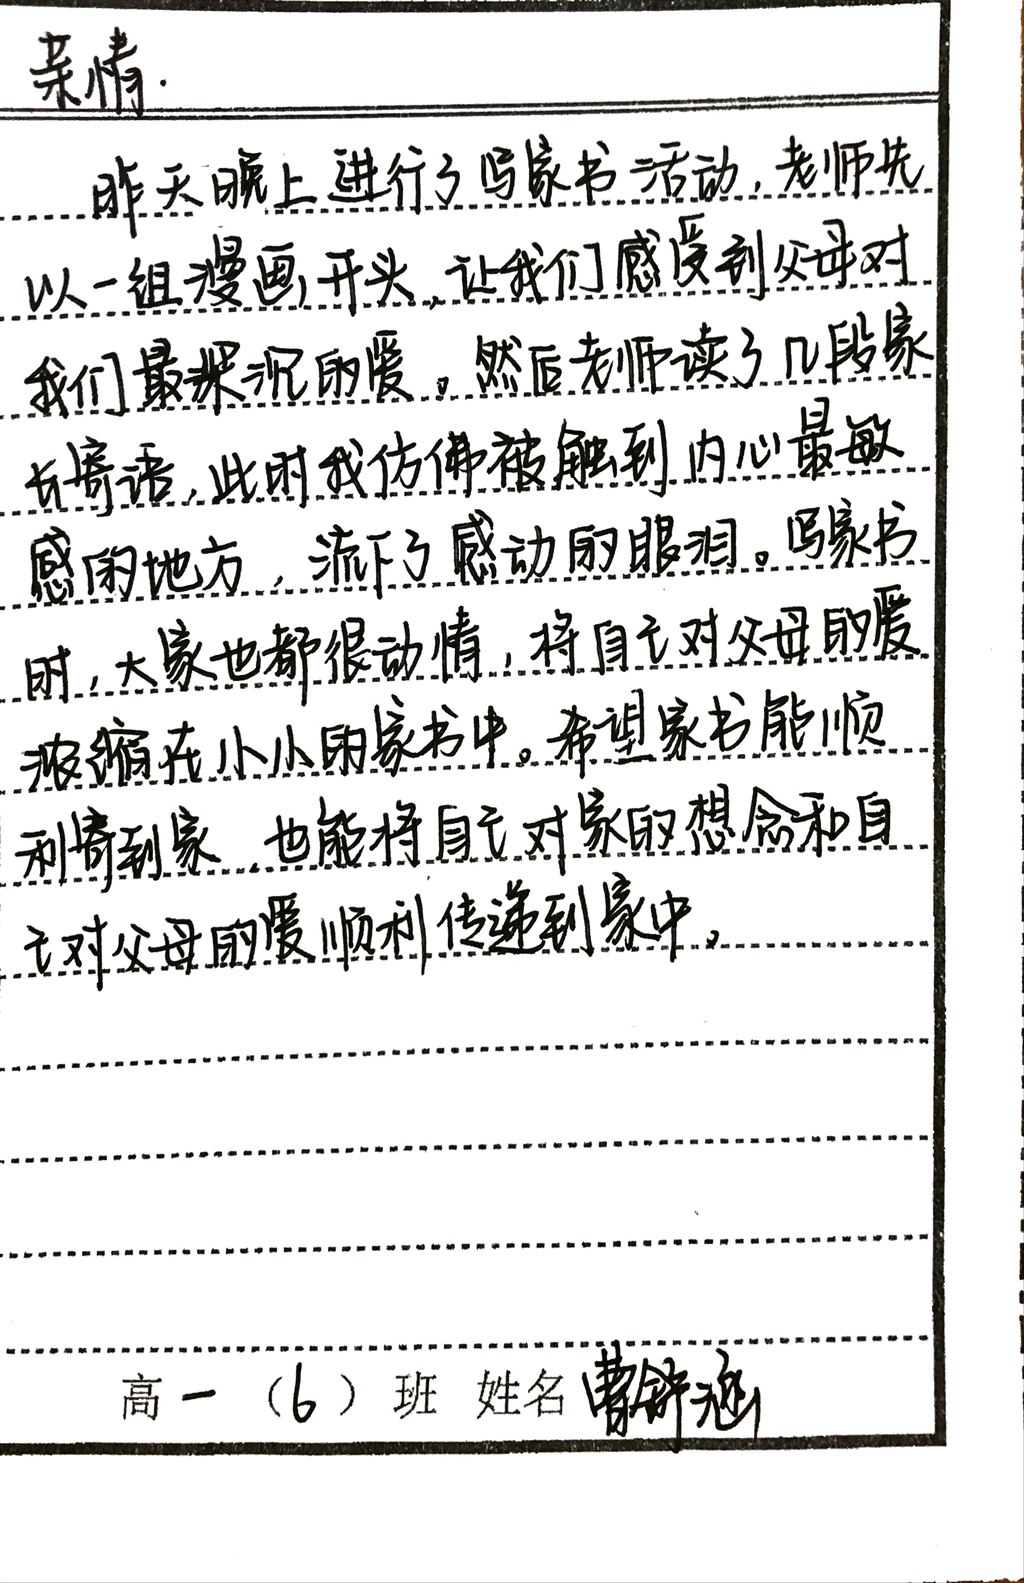 亲情.
昨天晚上进行了写家书活动，老师先
以一组漫画开头，让我们感受到父母对
我们最深沉的爱。然后老师读了几段家
长寄语，此时我仿佛被触到内心最敏
感的地方，流下了感动的眼泪。写家书
时，大家也都很动情，将自己对父母的爱
浓缩在小小的家书中。希望家书能顺
利寄到家，也能将自己对家的想念和自
己对父母的爱顺利传递到家中。
高一（6）班 姓名 曹舒涵